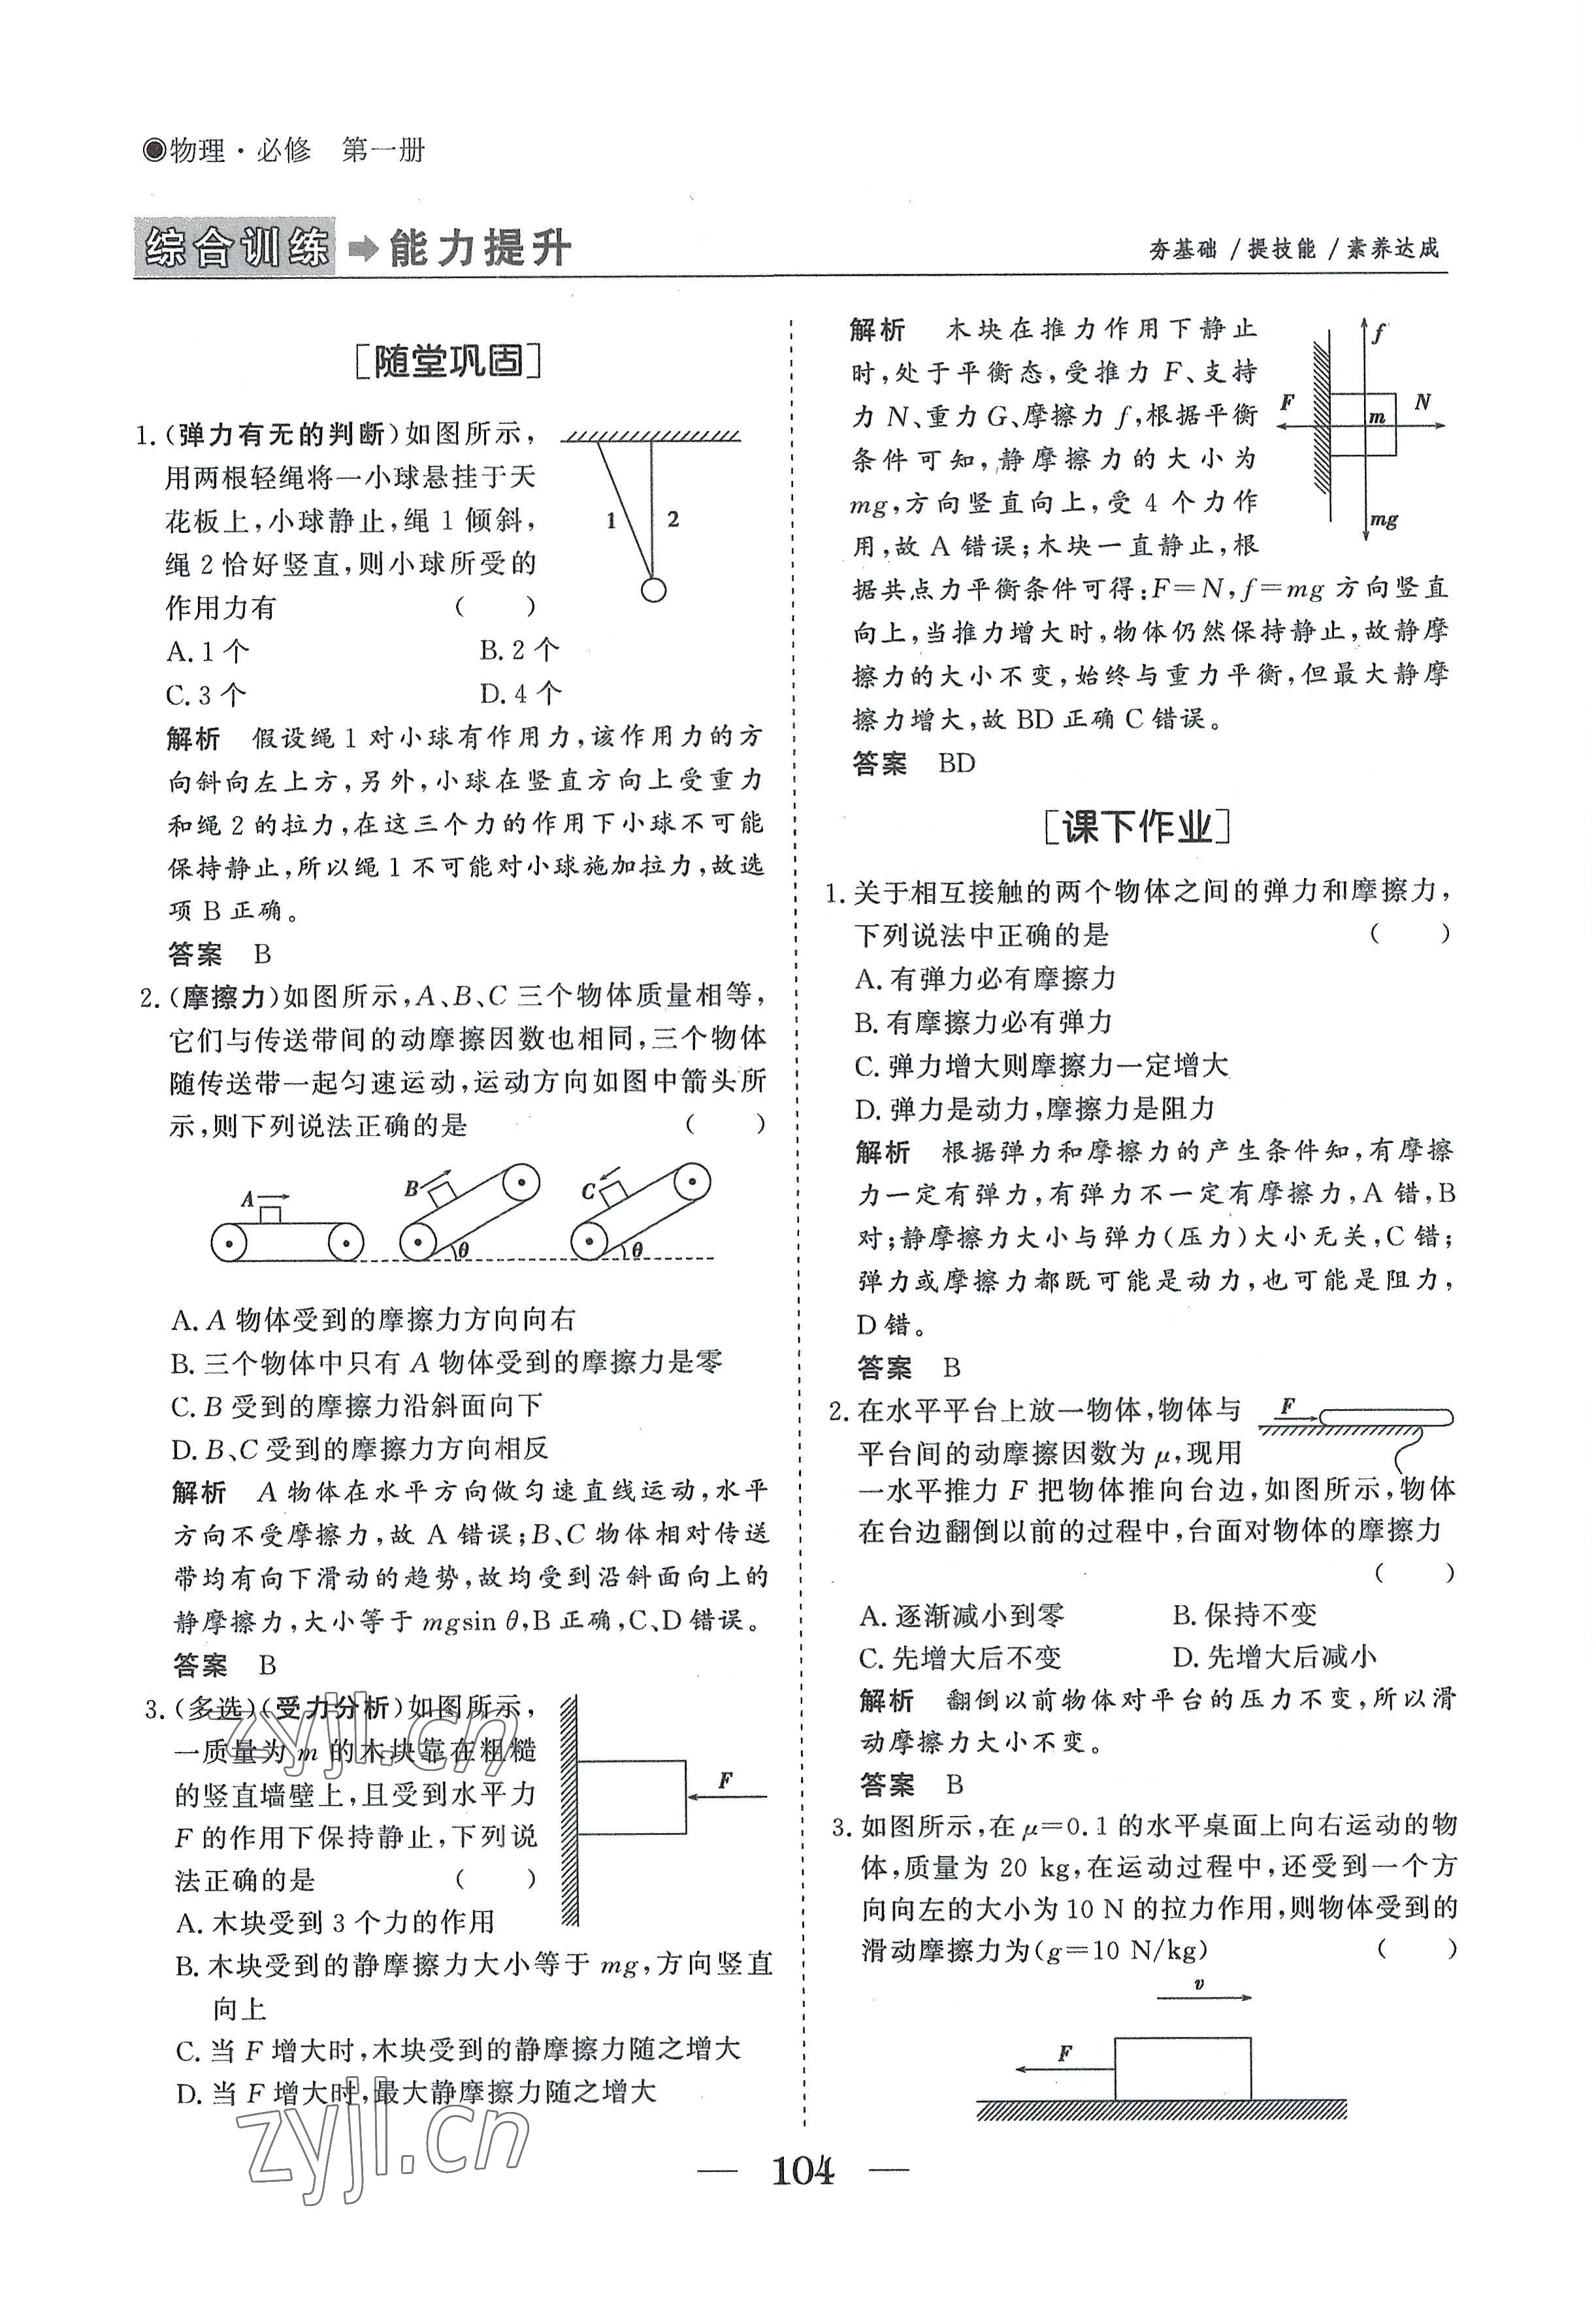 ◉物理·必修 第一册
综合训练 ➡ 能力提升
夯基础 / 提技能 / 素养达成
[随堂巩固]
1.(弹力有无的判断)如图所示,
用两根轻绳将一小球悬挂于天
花板上,小球静止,绳 1 倾斜,
绳 2 恰好竖直,则小球所受的
作用力有 ( )
1 2
A. 1 个 B. 2 个
C. 3 个 D. 4 个
解析 假设绳 1 对小球有作用力,该作用力的方
向斜向左上方,另外,小球在竖直方向上受重力
和绳 2 的拉力,在这三个力的作用下小球不可能
保持静止,所以绳 1 不可能对小球施加拉力,故选
项 B 正确。
答案 B
2.(摩擦力)如图所示,A、B、C 三个物体质量相等,
它们与传送带间的动摩擦因数也相同,三个物体
随传送带一起匀速运动,运动方向如图中箭头所
示,则下列说法正确的是 ( )
A B θ C θ
A. A 物体受到的摩擦力方向向右
B. 三个物体中只有 A 物体受到的摩擦力是零
C. B 受到的摩擦力沿斜面向下
D. B、C 受到的摩擦力方向相反
解析 A 物体在水平方向做匀速直线运动,水平
方向不受摩擦力,故 A 错误;B、C 物体相对传送
带均有向下滑动的趋势,故均受到沿斜面向上的
静摩擦力,大小等于 mgsin θ,B 正确,C、D 错误。
答案 B
3.(多选)(受力分析)如图所示,
一质量为 m 的木块靠在粗糙
的竖直墙壁上,且受到水平力
F 的作用下保持静止,下列说
法正确的是 ( )
F
A. 木块受到 3 个力的作用
B. 木块受到的静摩擦力大小等于 mg,方向竖直
向上
C. 当 F 增大时,木块受到的静摩擦力随之增大
D. 当 F 增大时,最大静摩擦力随之增大
zyjl.cn
zyjl.cn
解析 木块在推力作用下静止
时,处于平衡态,受推力 F、支持
力 N、重力 G、摩擦力 f,根据平衡
条件可知,静摩擦力的大小为
mg,方向竖直向上,受 4 个力作
用,故 A 错误;木块一直静止,根
据共点力平衡条件可得:F=N,f=mg 方向竖直
向上,当推力增大时,物体仍然保持静止,故静摩
擦力的大小不变,始终与重力平衡,但最大静摩
擦力增大,故 BD 正确 C 错误。
f
F m N
mg
答案 BD
[课下作业]
1. 关于相互接触的两个物体之间的弹力和摩擦力,
下列说法中正确的是 ( )
A. 有弹力必有摩擦力
B. 有摩擦力必有弹力
C. 弹力增大则摩擦力一定增大
D. 弹力是动力,摩擦力是阻力
解析 根据弹力和摩擦力的产生条件知,有摩擦
力一定有弹力,有弹力不一定有摩擦力,A 错,B
对;静摩擦力大小与弹力(压力)大小无关,C 错;
弹力或摩擦力都既可能是动力,也可能是阻力,
D 错。
答案 B
2. 在水平平台上放一物体,物体与
平台间的动摩擦因数为 μ,现用
一水平推力 F 把物体推向台边,如图所示,物体
在台边翻倒以前的过程中,台面对物体的摩擦力
( )
F
A. 逐渐减小到零 B. 保持不变
C. 先增大后不变 D. 先增大后减小
解析 翻倒以前物体对平台的压力不变,所以滑
动摩擦力大小不变。
答案 B
3. 如图所示,在 μ=0.1 的水平桌面上向右运动的物
体,质量为 20 kg,在运动过程中,还受到一个方
向向左的大小为 10 N 的拉力作用,则物体受到的
滑动摩擦力为(g=10 N/kg) ( )
v
F
— 104 —